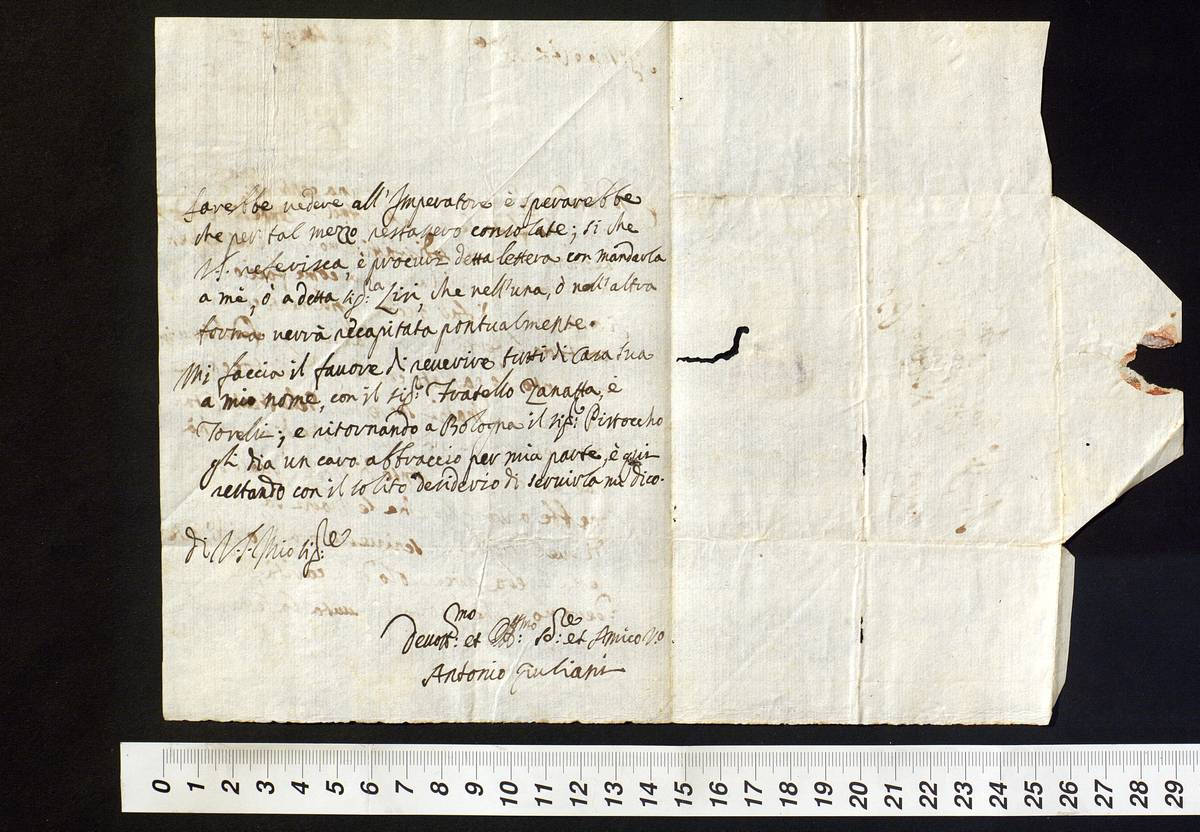 farebbe vedere all'Imperatore è sperarebbe
che per tal mezzo restassero consolate; si che
V.S. referisca, è procuri detta lettera con mandarla
a mè, ò a detta sig.ra Liri, che nell'una, ò nell'altra
forma verrà recapitata pontualmente.
Mi faccia il favore di reverire tutti di Casa sua
a mio nome, con il sig.r Fratello Zanatta, è
Torelli; e ritornando a Bologna il sig.r Pistocho
gli dia un caro abbraccio per mia parte, è qui
restando con il solito desiderio di servirla mi dico.
di V.S. Mio sig.re
Devott.mo et Obb.mo Se.re et Amico V.o
Antonio Giuliani
0 1 2 3 4 5 6 7 8 9 10 11 12 13 14 15 16 17 18 19 20 21 22 23 24 25 26 27 28 29